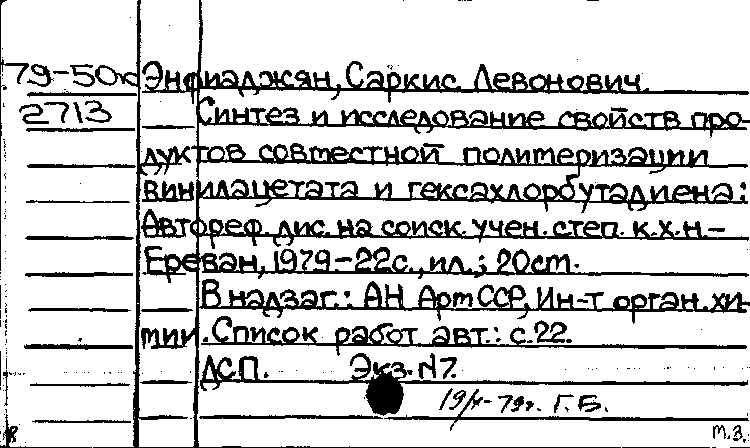 79-50к Энфиаджян, Саркис Левонович.
2713 Синтез и исследование свойств про-
дуктов совместной полимеризации
винилацетата и гексахлорбутадиена:
Автореф. дис. на соиск. учен. степ. к.х.н.-
Ереван, 1979-22с., ил.; 20см.
В надзаг.: АН АрмССР, Ин-т орган. хи-
мии. Список работ авт.: с.22.
ДСП. Экз. N7.
79г. Г.Б.
м.з.